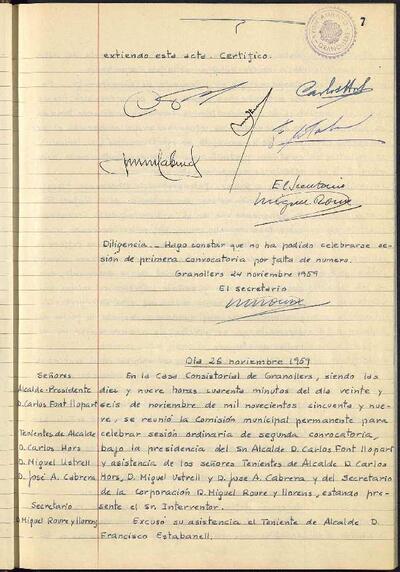 7
AYUNTAMIENTO
GRANOLLERS
extiendo esta acta. Certifico.
Carlos Hors
El Secretario
Miguel Roure
Diligencia.- Hago constar que no ha podido celebrarse se-
sión de primera convocatoria por falta de numero.
Granollers 24 noviembre 1959
El secretario
Dia 26 noviembre 1959
Señores
Alcalde-Presidente
D. Carlos Font llopart
Tenientes de Alcalde
D. Carlos Hors
D. Miguel Ustrell
D. José A. Cabrera
Secretario
D. Miguel Roure y llorens
En la Casa Consistorial de Granollers, siendo las
diez y nueve horas cuarenta minutos del día veinte y
seis de noviembre de mil novecientos cincuenta y nue-
ve, se reunió la Comisión municipal permanente para
celebrar sesión ordinaria de segunda convocatoria,
bajo la presidencia del Sn Alcalde D. Carlos Font llopart
y asistencia de los señores Tenientes de Alcalde D. Carlos
Hors, D. Miguel Ustrell y D. Jose A. Cabrera y del Secretario
de la Corporación D. Miguel Roure y llorens, estando presen-
te el Sn Interventor.
Excusó su asistencia el Teniente de Alcalde D.
Francisco Estabanell.